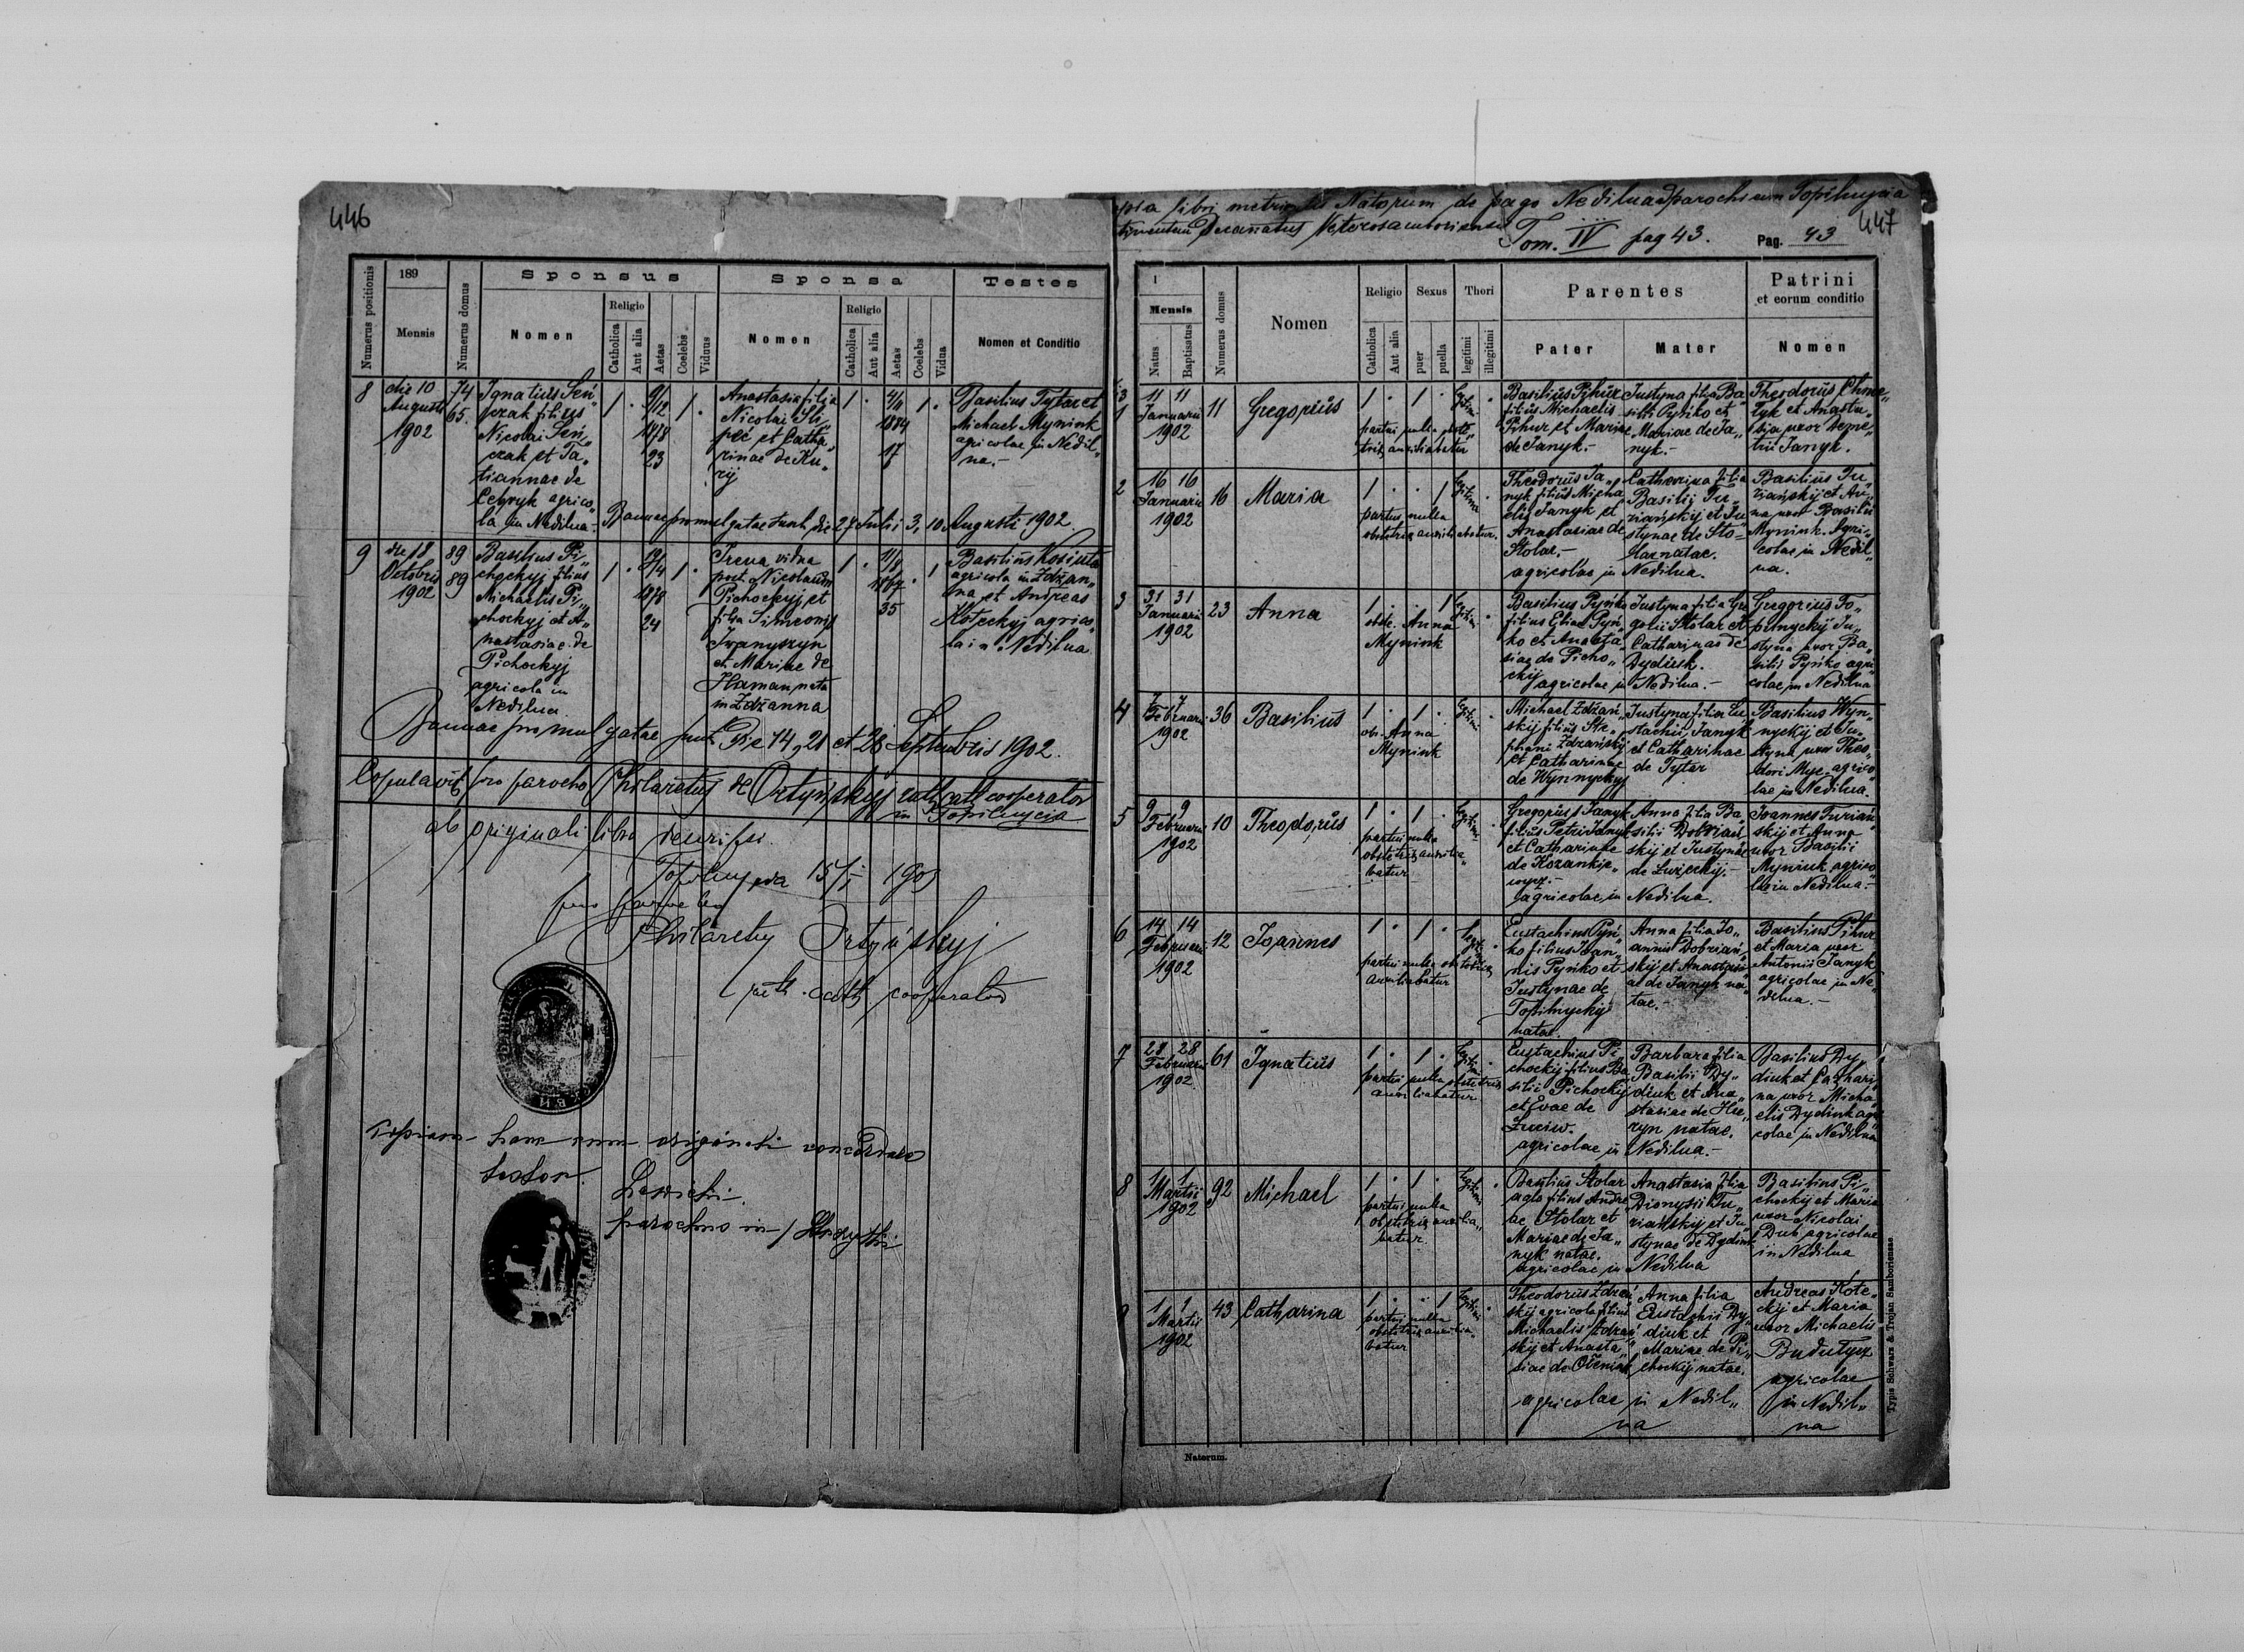 446
Numerus positionis
189
Mensis
Numerus domus
Sponsus
Nomen
Religio
Catholica
Aut alia
Aetas
Coelebs
Viduus
Sponsa
Nomen
Religio
Catholica
Aut alia
Aetas
Coelebs
Vidua
Testes
Nomen et Conditio
8
die 10
Augusti
1902
74
65.
Ignatius Seń„
czak filius
Nicolai Seń„
czak et Ta„
tiannae de
agrico„
la in Nedilna.
1 . 1878
23
1 .
Anastasia filia
Nicolai Sli„
peć et Catha„
rinae de Ku„
rij
1 . 1884
17
1 .
Basilius Tytar et
Michael Mynink
agricolae in Nedil„
na.-
Bannae promulgatae sunt die 27 Julii 3, 10 Augusti 1902.
9
die 18
Octobris
1902
89
89
Basilius Pi„
chockyj filius
Michaelis Pi„
chockyj et A„
nastasiae de
Pichockyj
agricola in
Nedilna
1 . 1878
24
1 .
Irena vidua
post Nicolaum
Pichockyj et
filia Simeonis
Iwanyszyn
et Mariae de
Haman nata
in Zdżanna
1 . 1867
35
. 1
Basilius Kosiuta
agricola in Zdżan„
na et Andreas
Koteckyj agrico„
la in Nedilna
Bannae promulgatae sunt Die 14, 21 et 28 Septembris 1902.
Copulavit pro parocho Philaretus de Ortyńskyj ruth. cath. cooperator
in Topilnycia
ab originali libro descripsi
Topilnycia 15/I 1903
pro parocho
Philarety Ortyńskyj
ruth. cath. cooperator
Copiam hanc cum originali concordare
testor.
parochus in
447
Copia libri metricalis Natorum de pago Nedilna ad parochiam Topilnycia
Decanatus Veterosamboriensis
Tom. IV pag 43.
Pag. 43
1
Mensis
Natus
Baptisatus
Numerus domus
Nomen
Religio
Catholica
Aut alia
Sexus
puer
puella
Thori
legitimi
illegitimi
Parentes
Pater
Mater
Patrini
et eorum conditio
Nomen
1
11 11
Januarii
1902
11
Gregorius
1 . 1 . legitimi .
partui nulla obste„
trix auxiliabatur
Basilius Pyhur
filius Michaelis
Pihur et Mariae
de Janyk.-
Justyna filia Ba„
silii Pyńko et
Mariae de Ja„
nyk.-
Theodorus Chme„
lyk et Anasta„
sia uxor Deme„
trii Janyk.
2
16 16
Januarii
1902
16
Maria
1 . . 1 legitimi .
partui nulla
obstetrix auxiliabatur.
Theodorus Ja„
nyk filius Micha„
elis Janyk et
Anastasiae de
Stolar.-
Catharina filia
Basilii Tu„
riańskij et Ju„
stynae de Sto„
lar natae.
agricolae in Nedilna.
Basilius Tu„
riańskij et An„
na uxor Basilii
Mynink. Agri„
colae in Nedil„
na.
3
31 31
Januarii
1902
23
Anna
1 . . 1 legitimi .
obste. Anna
Mynink
Basilius Pyńko
filius Eliae Pyń„
ko et Anasta„
siae de Picho„
ckij
Justyna filia Gre„
gorii Stolar et
Catharinae de
Dydiuk.
agricolae in Nedilna.-
Gregorius To„
pilnyckij Ju„
styna uxor Ba„
silii Pyńko agri„
colae in Nedilna
4
7 7
Februarii
1902
36
Basilius
1 . 1 . legitimi .
ob. Anna
Mynink
Michael Zdżań„
skij filius Ste„
phani Zdżańskij
et Catharinae
de Wynnyckyj
Justyna filia Eu„
stachii Janyk
et Catharinae
de Tytar
Basilius Wyn„
nyckij et Ju„
styna uxor Theo„
dori Myc agrico„
lae in Nedilna.
5
9 9
Februarii
1902
10
Theodorus
1 . 1 . legitimi .
partui nulla
obstetrix auxilia„
batur
Gregorius Janyk
filius Petri Janyk
et Catharinae
de Kozankie„
wycz.-
Anna filia Ba„
silii Dobriań„
skij et Justynae
de Łużeckij.-
agricolae in Nedilna.
Joannes Turiań„
skij et Anna
uxor Basilii
Mynink agrico„
lae in Nedilna.-
6
14 14
Februarii
1902
12
Joannes
1 . 1 . legitimi .
partui nulla obstetrix
auxiliabatur
Eustachius Pyń„
ko filius Joan„
nis Pyńko et
Justynae de
Topilnyckij
natae.
Anna filia Jo„
annis Dobriań„
skij et Anastasi„
ae de Janyk na„
tae.-
Basilius Pihur
et Maria uxor
Antonii Janyk
agricolae in Ne„
dilna.-
7
28 28
Februarii
1902
61
Ignatius
1 . 1 . legitimi .
partui nulla obstetrix
auxiliabatur
Eustachius Pi„
chockij filius Ba„
silii Pichockij
et Evae de
Łuciw.
Barbara filia
Basilii Dy„
diuk et Ana„
stasiae de Hu„
ryn natae.
agricolae in Nedilna.-
Basilius Dy„
diuk et Cathari„
na uxor Micha„
elis Dydiuk agri„
colae in Nedilna
8
1 1
Martii
1902
92
Michael
1 . 1 . legitimi .
partui nulla
obstetrix auxilia„
batur.
Basilius Stolar
filius Andre„
ae Stolar et
Mariae de Ja„
nyk natae.
Anastasia filia
Dionysii Tu„
riańskij et Ju„
stynae de Dydiuk
agricolae in Nedilna
Basilius Pi„
chockij et Maria
uxor Nicolai
Dub agricolae
in Nedilna
9
1 1
Martii
1902
43
Catharina
1 . . 1 legitimi .
partui nulla
obstetrix auxilia„
batur
Theodorus Zdżań„
skij agricola filius
Michaelis Zdżań„
skij et Anasta„
siae de
Anna filia
Eustachii Dy„
diuk et
Mariae de Pi„
chockij natae.
agricolae in Nedil„
na
Andreas Kote„
ckij et Maria
uxor Michaelis
agricolae
in Nedil„
na
Natorum.
Typis Schwarz & Trojan Samboriensae